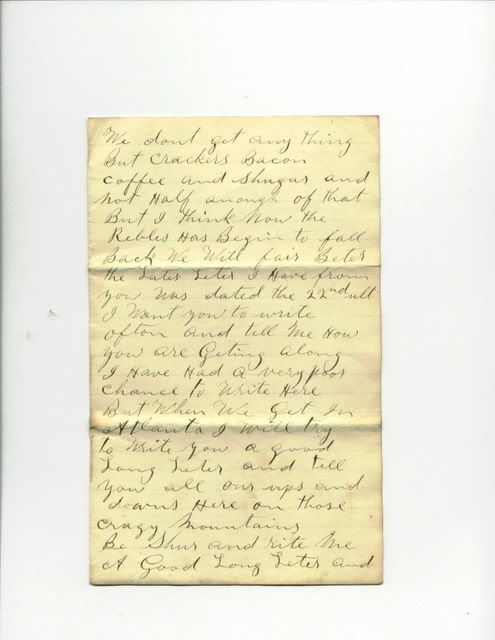 We dont get any thing
But Crackers Bacon
coffee and Shugar and
not Half anough of that
But I think Now the
Rebles Has Begin to fall
Back We Will fair Beter
the Lates Leter I Have from
you was dated the 22nd ult
I Want you to write
ofton and tell Me How
you are Geting along
I Have Had a very poor
chance to Write Here
But When We Get In
Atlanta I will try
to Write you a good
Long Leter and tell
you all our ups and
downs Here on those
crazy Mountains
Be Shur and rite Me
A Good Long Leter and